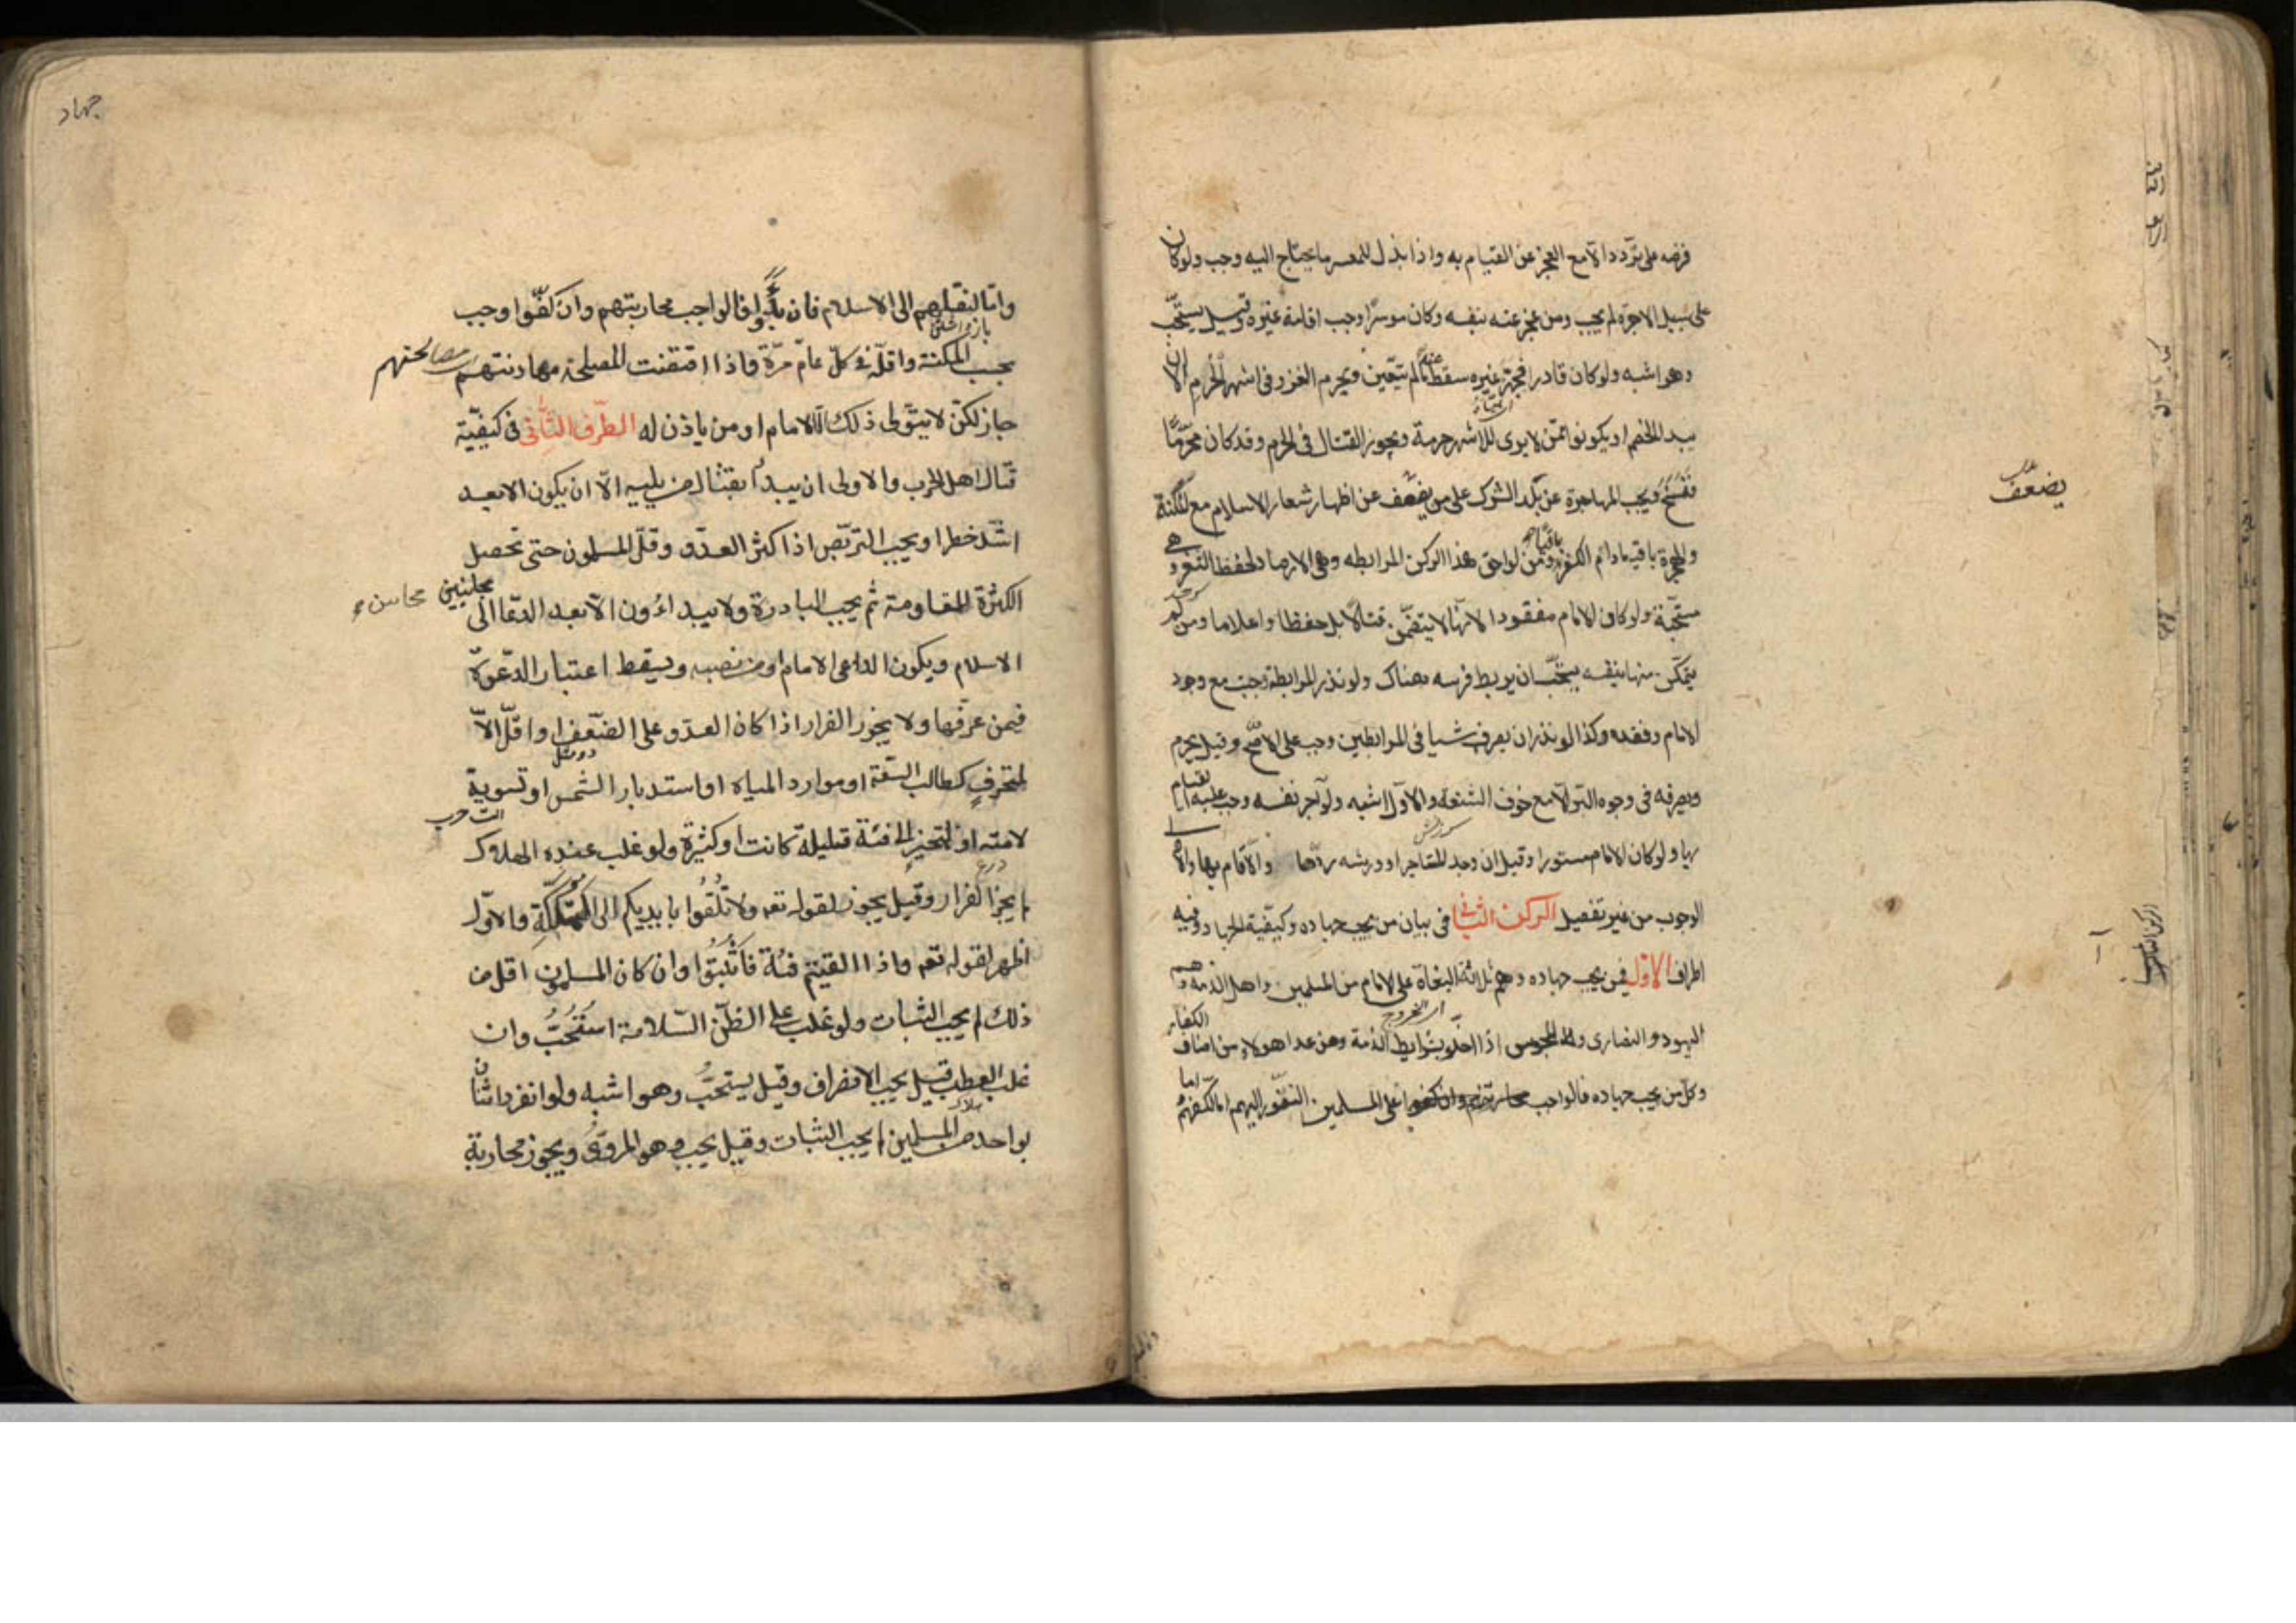 فرضه على تردد الا مع العجز عن القيام به واذا بذل للمعسر ما يحتاج اليه وجب ولو كان
على سبيل الاجرة لم يجب ومن عجز عنه بنفسه وكان موسرا وجب اقامة غيره وقيل يستحب
وهو اشبه ولو كان قادرا فجهز غيره سقط عنه ما لم يتعين ويحرم الغزو فى اشهر الحرم الا ان
يبدا الخصم او يكونوا ممن لا يرى للاشهر حرمة ويجوز القتال فى الحرم وقد كان محرما
فنسخ ويجب المهاجرة عن بلد الشرك على من يضعف عن اظهار شعار الاسلام مع المكنة
والهجرة باقية ما دام الكفر باقيا ومن لواحق هذا الركن المرابطه وهى الارصاد لحفظ الثغر وهى
مستحبة ولو كان الامام مفقودا لانها لا يتضمن قتالا بل حفظا واعلاما ومن لم
يتمكن منها بنفسه يستحب ان يربط فرسه هناك ولو نذر المرابطة وجبت مع وجود
الامام وفقده وكذا لو نذر ان يصرف شيا فى المرابطين وجب على الاصح وقيل يحرم
ويصرفه فى وجوه البر الا مع خوف الشنعة والاول اشبه ولو آجر نفسه وجب عليه القيام
بها ولو كان الامام مستورا وقيل ان وجد المستاجر او ورثته ردها والا قام بها والاولى
الوجوب من غير تفصيل الركن الثانى فى بيان من يجب جهاده وكيفية الجهاد وفيه
اطراف الاول فيمن يجب جهاده وهم ثلاثة البغاة على الامام من المسلمين واهل الذمة وهم
اليهود والنصارى والمجوس اذا اخلوا بشرايط الذمة ومن عدا هولاء من اصناف الكفار
وكل من يجب جهاده فالواجب على المسلمين النفور اليهم اما لكفهم
يضعف
جهاد
واما لنقلهم الى الاسلام فان بدوا فالواجب محاربتهم وان كفوا وجب
بحسب المكنة واقله فى كل عام مرة فاذا اقتضت المصلحة مهادنتهم مصالحتهم
جاز لكن لا يتولى ذلك الا الامام او من ياذن له الطرف الثانى فى كيفية
قتال اهل الحرب والاولى ان يبدأ بقتال من يليه الا ان يكون الابعد
اشد خطرا ويجب التربص اذا كثر العدو وقل المسلمون حتى تحصل
الكثرة للمقاومة ثم يجب المبادرة ولا يبداؤن الا بعد الدعا الى محاسن
الاسلام ويكون الداعى الامام او من نصبه ويسقط اعتبار الدعوة
فيمن عرفها ولا يجوز الفرار اذا كان العدو على الضعف او اقل الا
لمتحرف كطالب السعة او موارد المياه او استدبار الشمس او تسوية
لامته او لمتحيز الى فئة قليلة كانت او كثيرة ولو غلب عنده الهلاك
لم يجز الفرار وقيل يجوز لقوله تعه ولا تلقوا بايديكم الى التهلكة والاول
اظهر لقوله تعه واذا لقيتم فئة فاثبتوا وان كان المسلمون اقل من
ذلك لم يجب الثبات ولو غلب على الظن السلامة استحب وان
غلب العطب قيل يجب الانصراف وقيل يستحب وهو اشبه ولو انفرد اثنان
بواحد من المسلمين لم يجب الثبات وقيل يجب وهو المروى ويجوز محاربة